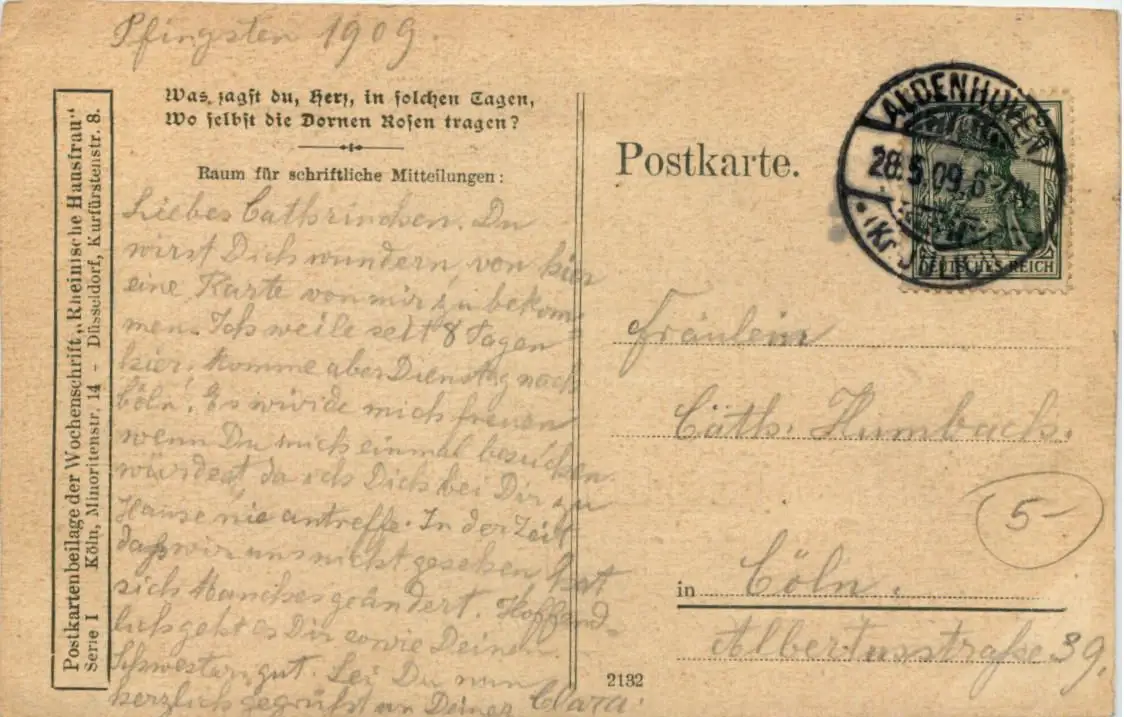 Pfingsten 1909.
Was sagst du, Herz, in solchen Tagen,
Wo selbst die Dornen Rosen tragen?
Raum für schriftliche Mitteilungen:
Liebes Cathrinchen. Du
wirst Dich wundern, von hier
eine Karte von mir zu bekom-
men. Ich weile seit 8 Tagen
hier, komme aber Dienstag nach
Cöln. Es würde mich freuen
wenn Du mich einmal besuchen
würdest da ich Dich bei Dir zu
Hause nie antreffe. In der Zeit
daß wir uns nicht gesehen, hat
sich Manches geändert. Hoffend-
lich geht es Dir sowie Deinen
Schwestern gut. Sei Du nun
herzlich gegrüßt von Deiner Clara.
Postkartenbeilage der Wochenschrift „Rheinische Hausfrau“
Serie I Köln, Minoritenstr. 14 - Düsseldorf, Kurfürstenstr. 8.
Postkarte.
ALDENHOVEN
28.5.09.6-7N.
* (Kr. JÜLICH)
5
DEUTSCHES REICH
Fräulein
Cäth. Humbach.
5-
in Cöln.
Albertusstraße 39.
2132